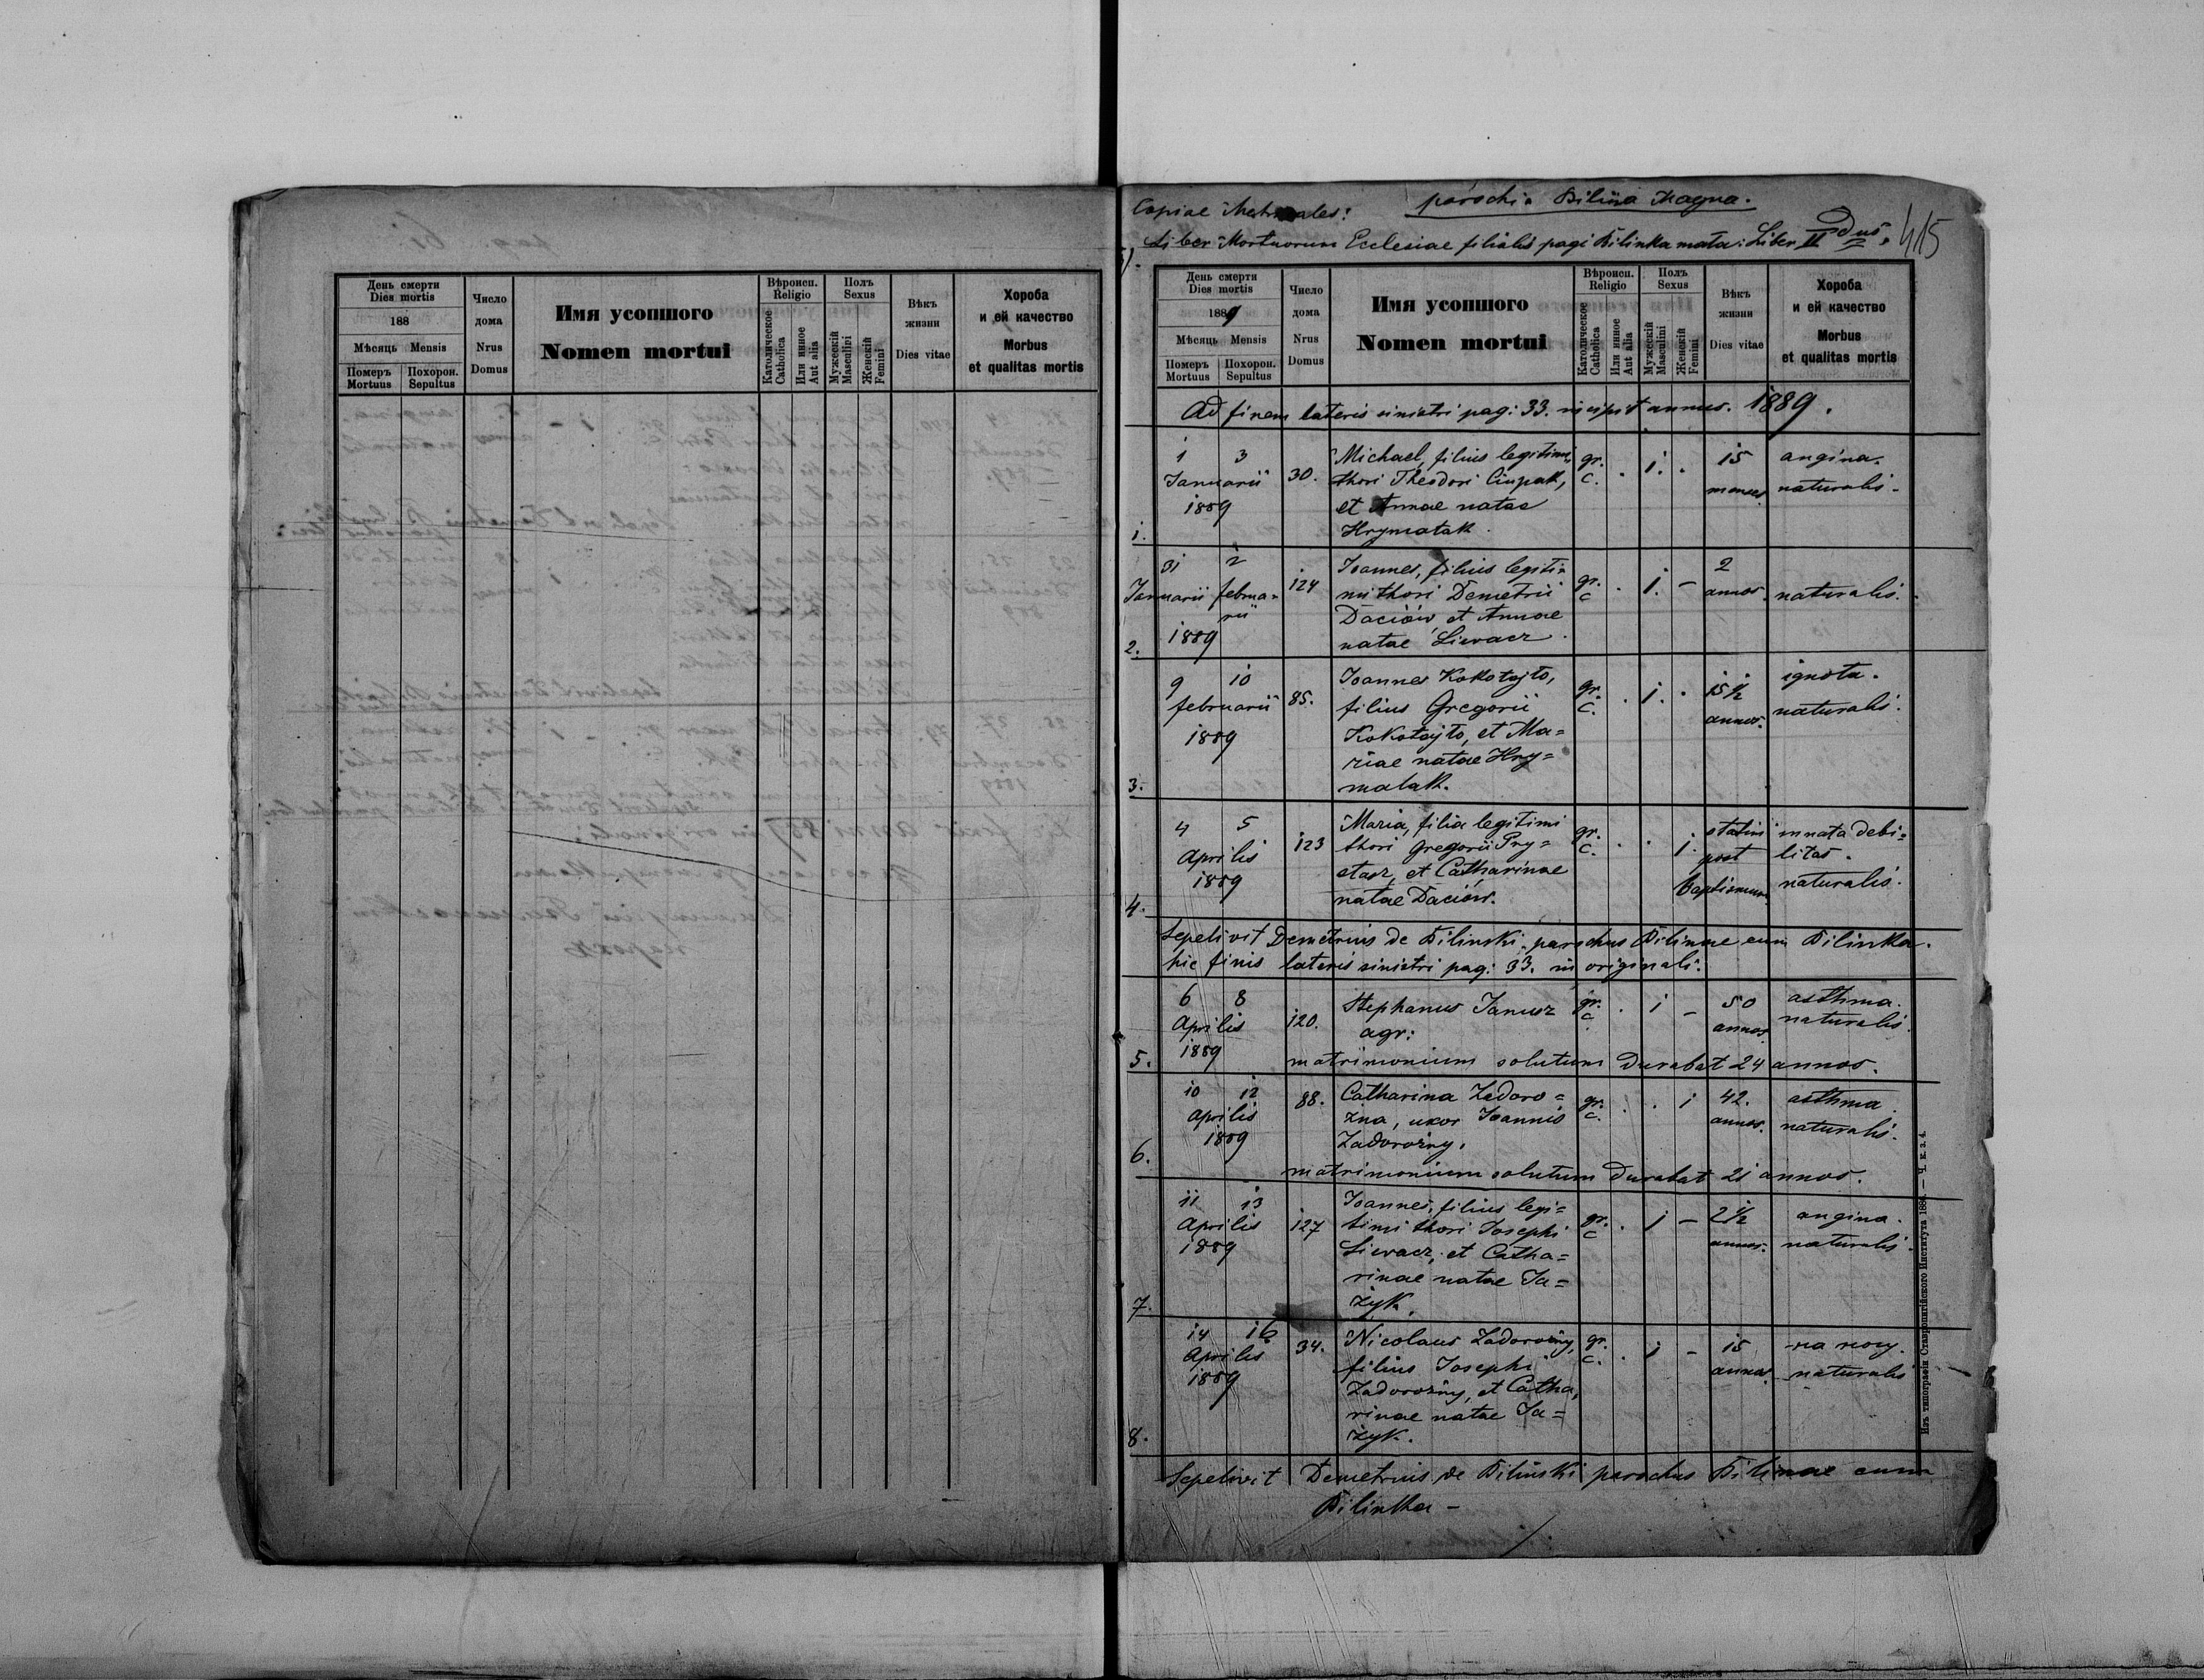 День смерти
Dies mortis
188
Мѣсяць Mensis
Померъ
Mortuus
Похорон.
Sepultus
Число
дома
Nrus
Domus
Имя усопшого
Nomen mortui
Вѣроисп.
Religio
Католическое
Catholica
Или инное
Aut alia
Полъ
Sexus
Мужескій
Masculini
Женскій
Femini
Вѣкъ
жизни
Dies vitae
Хороба
и ей качество
Morbus
et qualitas mortis
Copiae parochia Bilina Magna.
Liber Mortuorum Ecclesiae filialis pagi Bilinka mała: Liber II dus. 415
День смерти
Dies mortis
1889
Мѣсяць Mensis
Померъ
Mortuus
Похорон.
Sepultus
Число
дома
Nrus
Domus
Имя усопшого
Nomen mortui
Вѣроисп.
Religio
Католическое
Catholica
Или инное
Aut alia
Полъ
Sexus
Мужескій
Masculini
Женскій
Femini
Вѣкъ
жизни
Dies vitae
Хороба
и ей качество
Morbus
et qualitas mortis
Ad finem lateris sinistri pag: 33. incipit annus. 1889.
1 3 Michael, filius legitimi gr. 15 angina.
Januarii 30. thori Theodori Ciupak, c. . 1. . menses naturalis.
1889 et Annae natae
1. Hrymatak.
31 2 Joannes, filius legiti= 2
Januarii februa= 124 mi thori Demetrii gr. c . 1. - annos. naturalis.
rii Daciów et Annae
2. 1889 natae Siewacz.
9 10 Joannes Kokotajło, gr. 15 1/2 ignota.
februarii 85. filius Gregorii c. . 1. . annos. naturalis.
1889 Kokotajło, et Ma=
riae natae Hry=
3. malak.
4 5 Maria, filia legitimi gr. statim innata debi=
Aprilis 123 thori Gregorii Pry= c. . . 1. post litas.
1889 stasz, et Catharinae baptismum. naturalis.
4. natae Daciów.
Sepelivit Demetrius de Bilinski parochus Bilinae cum Bilinka.
hic finis lateris sinistri pag: 33. in originali.
6 8 Stephanus Janusz gr. . 1 - 50 asthma.
Aprilis 120. agr: c. annos. naturalis.
5. 1889 matrimonium solutum durabat 24 annos.
10 12 88. Catharina Zadoro= gr. . . 1 42. asthma.
Aprilis żna, uxor Joannis c. annos. naturalis.
1889 Zadorożny.
6. matrimonium solutum durabat 21 annos.
11 13 Joannes, filius legi= gr. . 1 - 2 1/2 angina.
Aprilis 127 timi thori Josephi c annos. naturalis.
1889 Siewacz, et Catha=
rinae natae Ja=
7. żyk.
14 16 34. Nicolaus Zadorożny, gr. . 1 - 15
Aprilis filius Josephi c. annos. naturalis
1889 Zadorożny, et Catha,
rinae natae Ja=
8. żyk.
Sepelivit Demetrius de Bilinski parochus Bilinae cum
Bilinka -
Изъ типографіи Ставропигійского Института 188 . — Ч. к. з. 4.